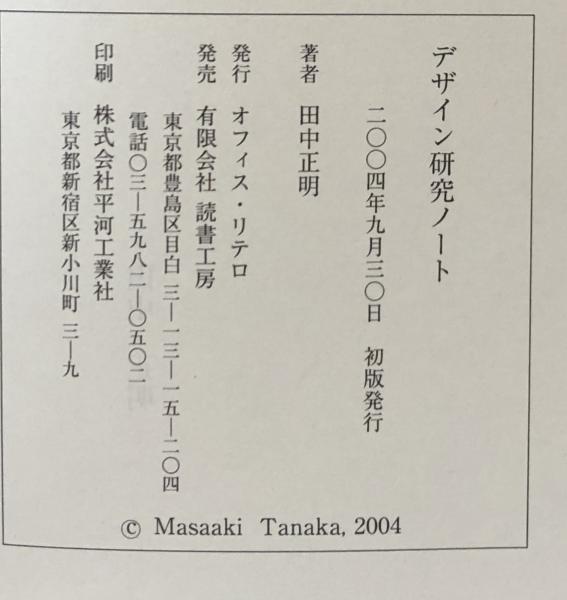 デザイン研究ノート
二〇〇四年九月三〇日　初版発行
著者　田中正明
発行　オフィス・リテロ
発売　有限会社 読書工房
東京都豊島区目白 三―一三―一五―二〇四
電話〇三―五九八二―〇五〇二
印刷　株式会社平河工業社
東京都新宿区新小川町 三―九
© Masaaki Tanaka, 2004